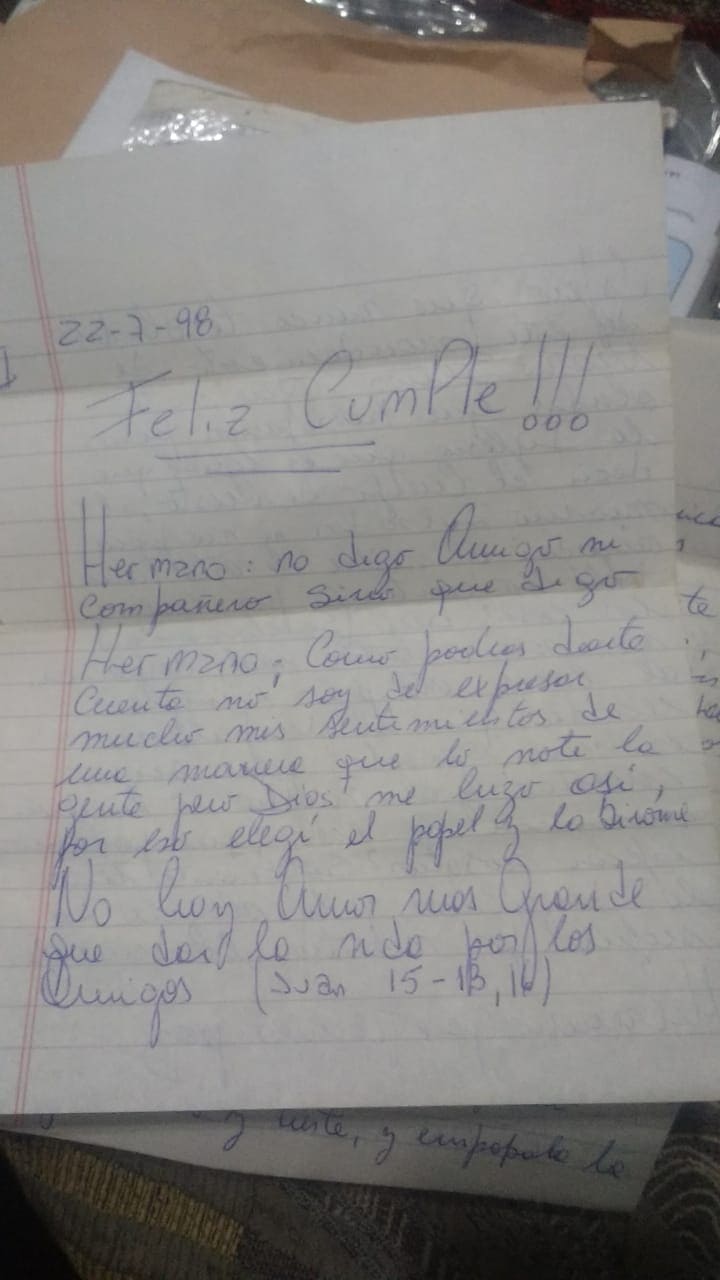 22-7-98
1
Feliz Cumple!!!
Hermano: no digo Amigo ni
compañero sino que digo
Hermano; Como podras darte
cuenta no soy de expresar
mucho mis sentimientos de
una manera que lo note la
gente pero Dios me hizo asi,
por eso elegí el papel y la birome
No hay Amor mas Grande
que dar la vida por los
Amigos (Juan 15-13,16)
te
y empapala la